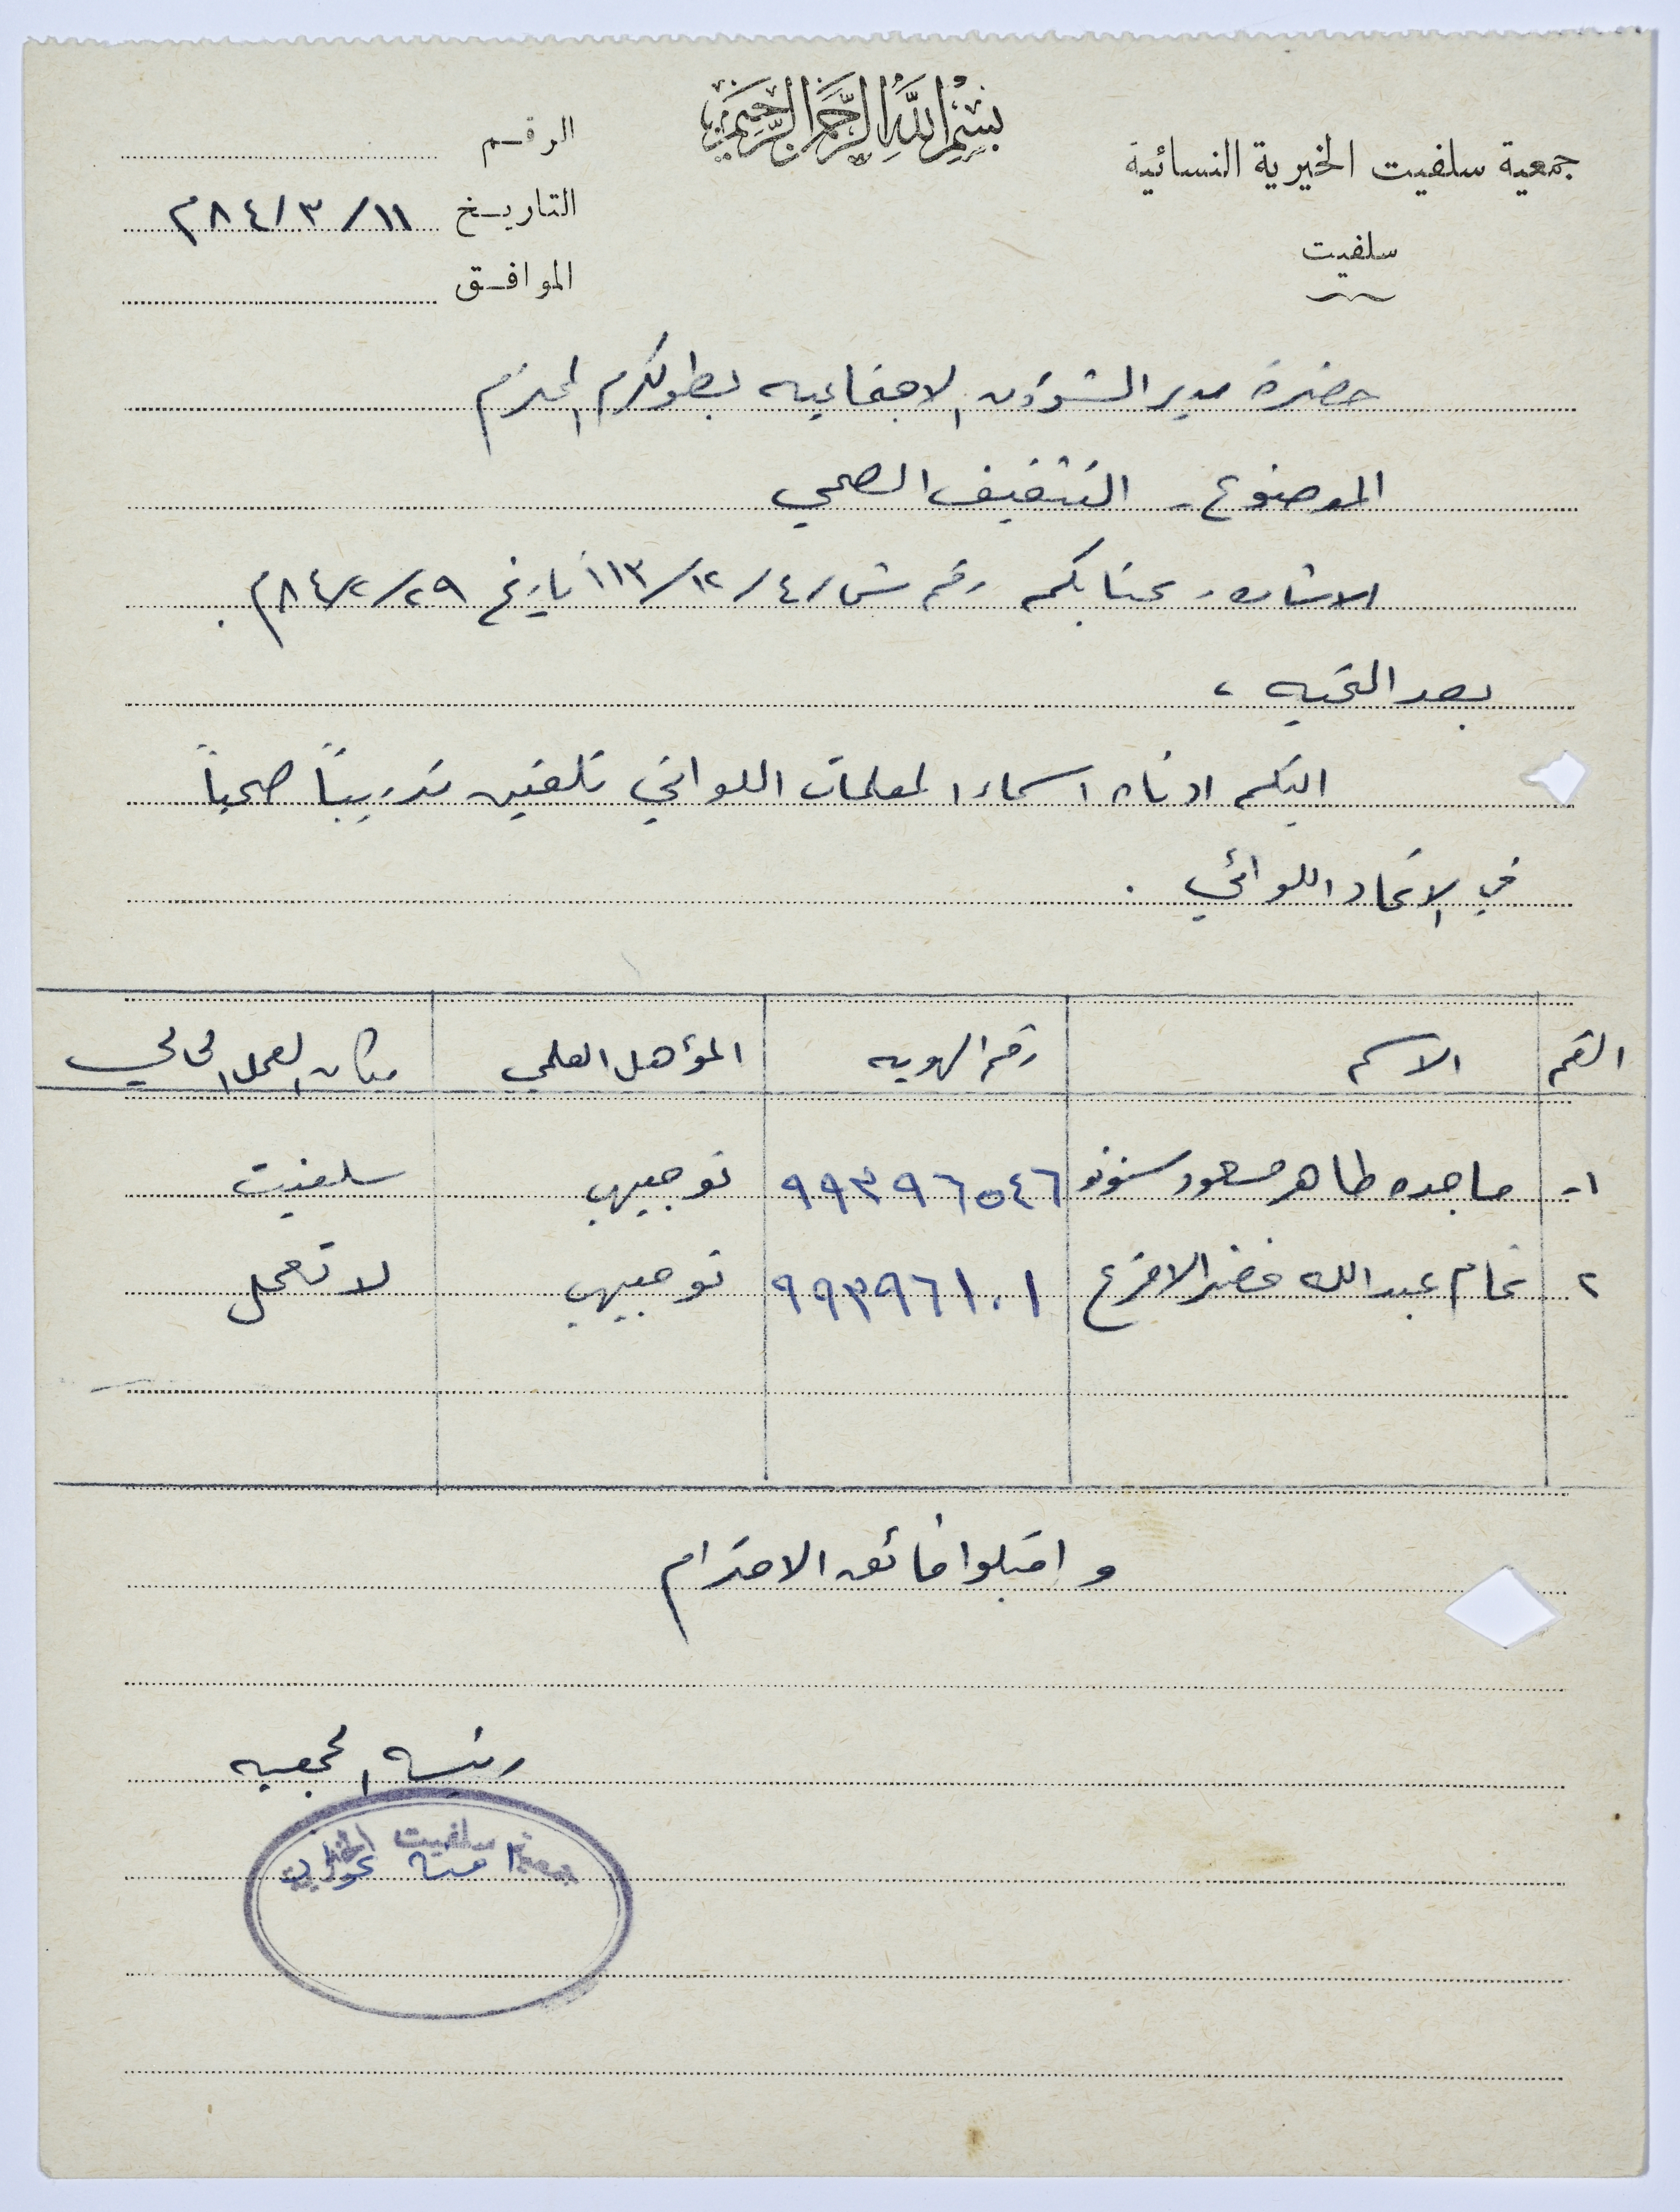 بسم الله الرحمن الرحيم
جمعية سلفيت الخيرية النسائية
سلفيت
الرقم
التاريخ ١١/٣/٨٤م
الموافق
حضرة مدير الشؤون الاجتماعيه بطولكرم المحترم
الموضوع - التثقيف الصحي
الاشاره - كتابكم رقم ش/٤/١٢/١١٣ تاريخ ٢٩/٢/٨٤م.
بعد التحيه ،
اليكم ادناه اسماء المعلمات اللواتي تلقين تدريباً صحياً
في الاتحاد اللوائي .
الرقم الاسم رقم الهويه المؤهل العلمي مكان العمل الحالي
١- ماجده طاهر مسعود ٩٩٣٩٦٥٤٦ توجيهي سلفيت
٢ ختام عبدالله خضر الاقرع ٩٩٣٩٦١٠١ توجيهي لا تعمل
واقبلوا فائق الاحترام
رئيسه الجمعيه
جمعية سلفيت الخيرية
امنه